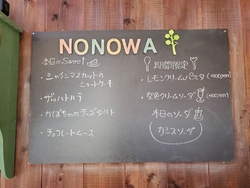 NONOWA
本日のSweet
・シャインマスカットの
ショートケーキ
・ザッハトルテ
・かぼちゃのチーズタルト
・チョコレートムース
期間限定
・レモンクリームパスタ
・空色クリームソーダ
本日のソーダ
カシスソーダ